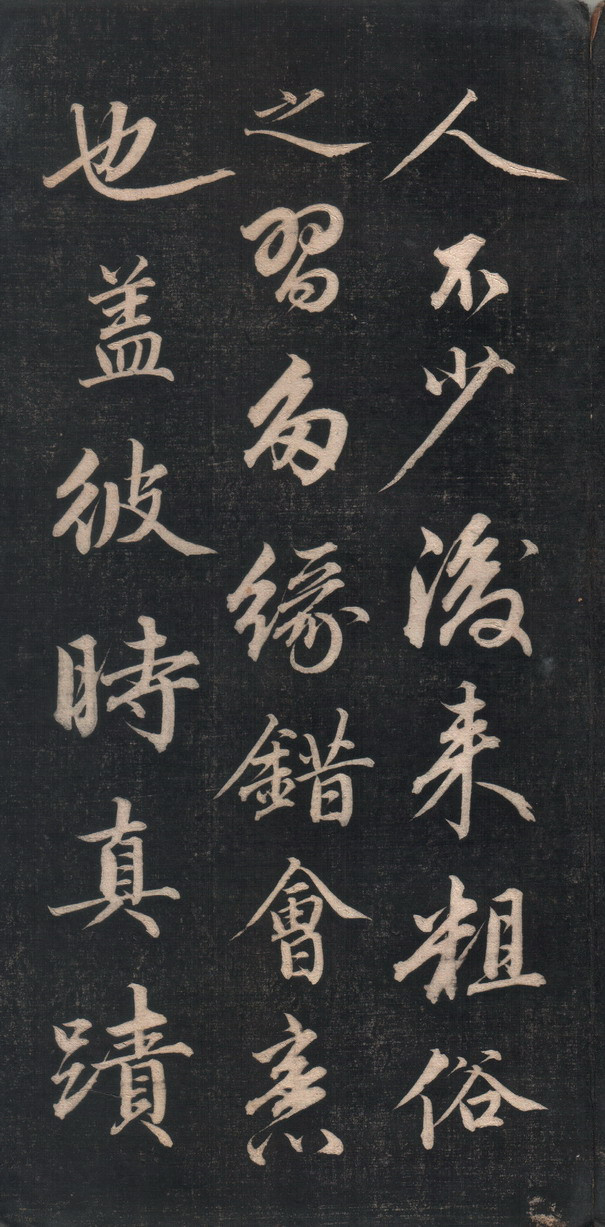 人不少後来粗俗
之習多縁錯會意
也盖彼時真蹟